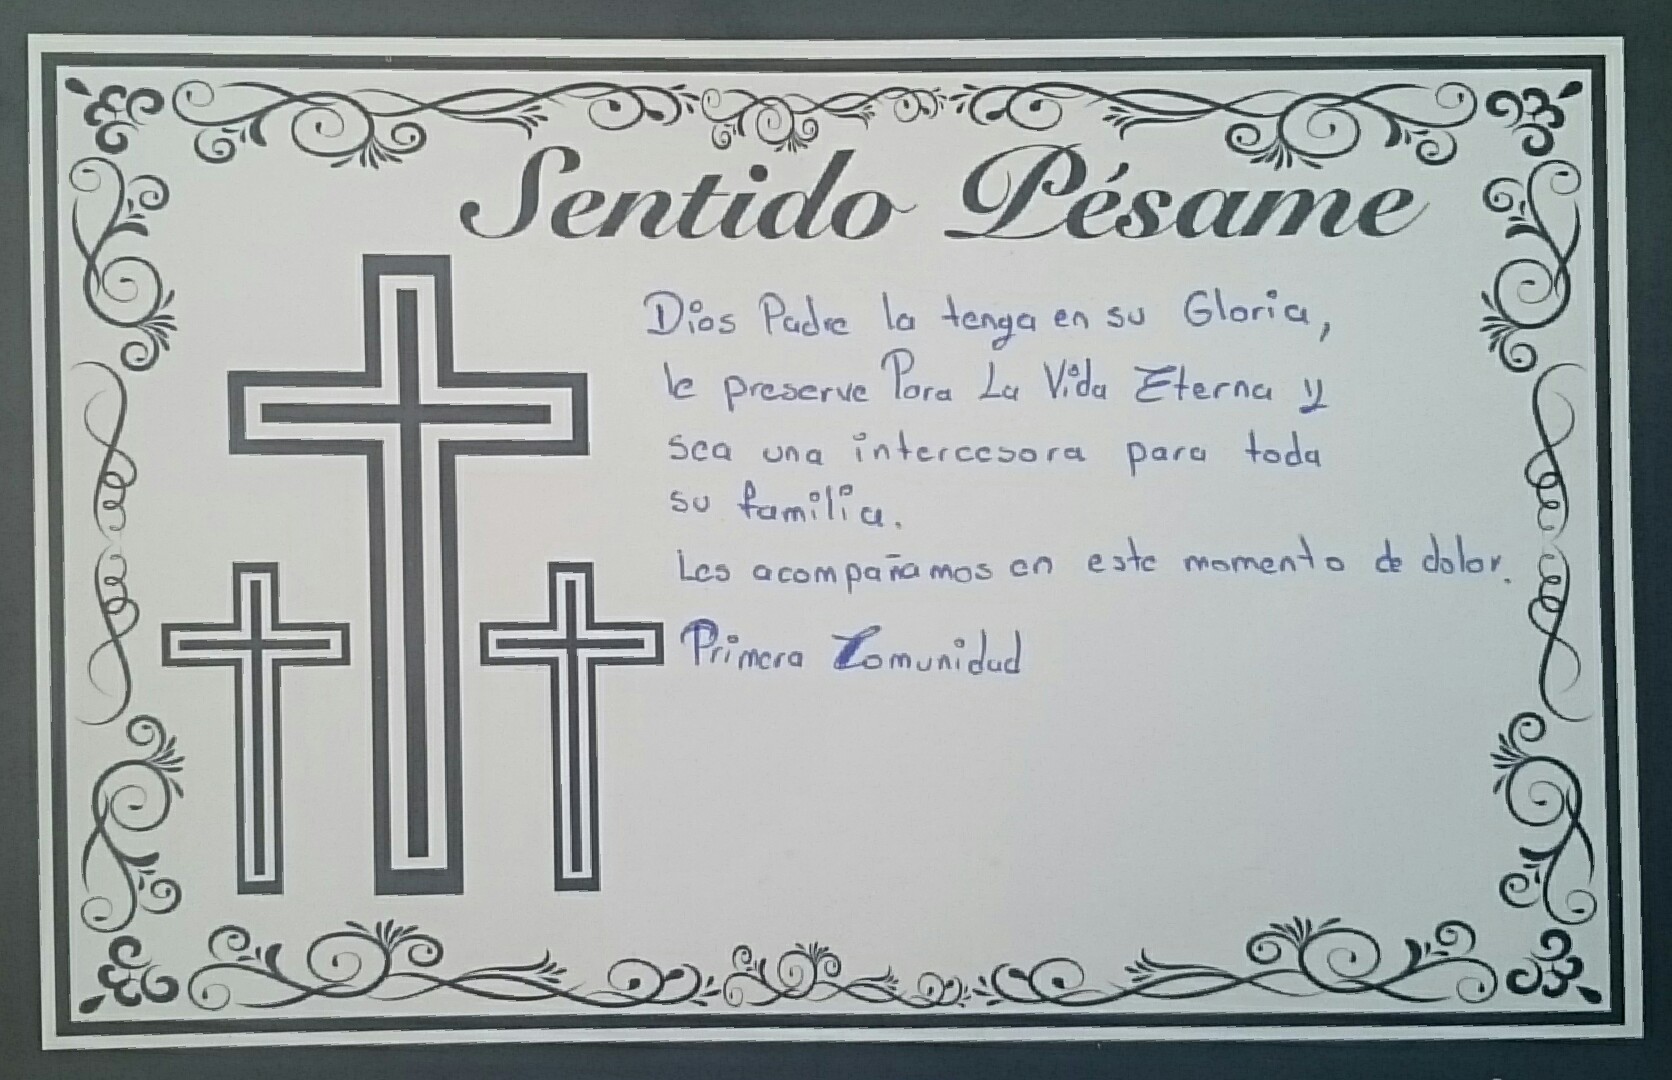 Sentido Pésame
Dios Padre la tenga en su Gloria,
le preserve Para La Vida Eterna y
sea una intercesora para toda
su familia.
Les acompañamos en este momento de dolor.
Primera Comunidad